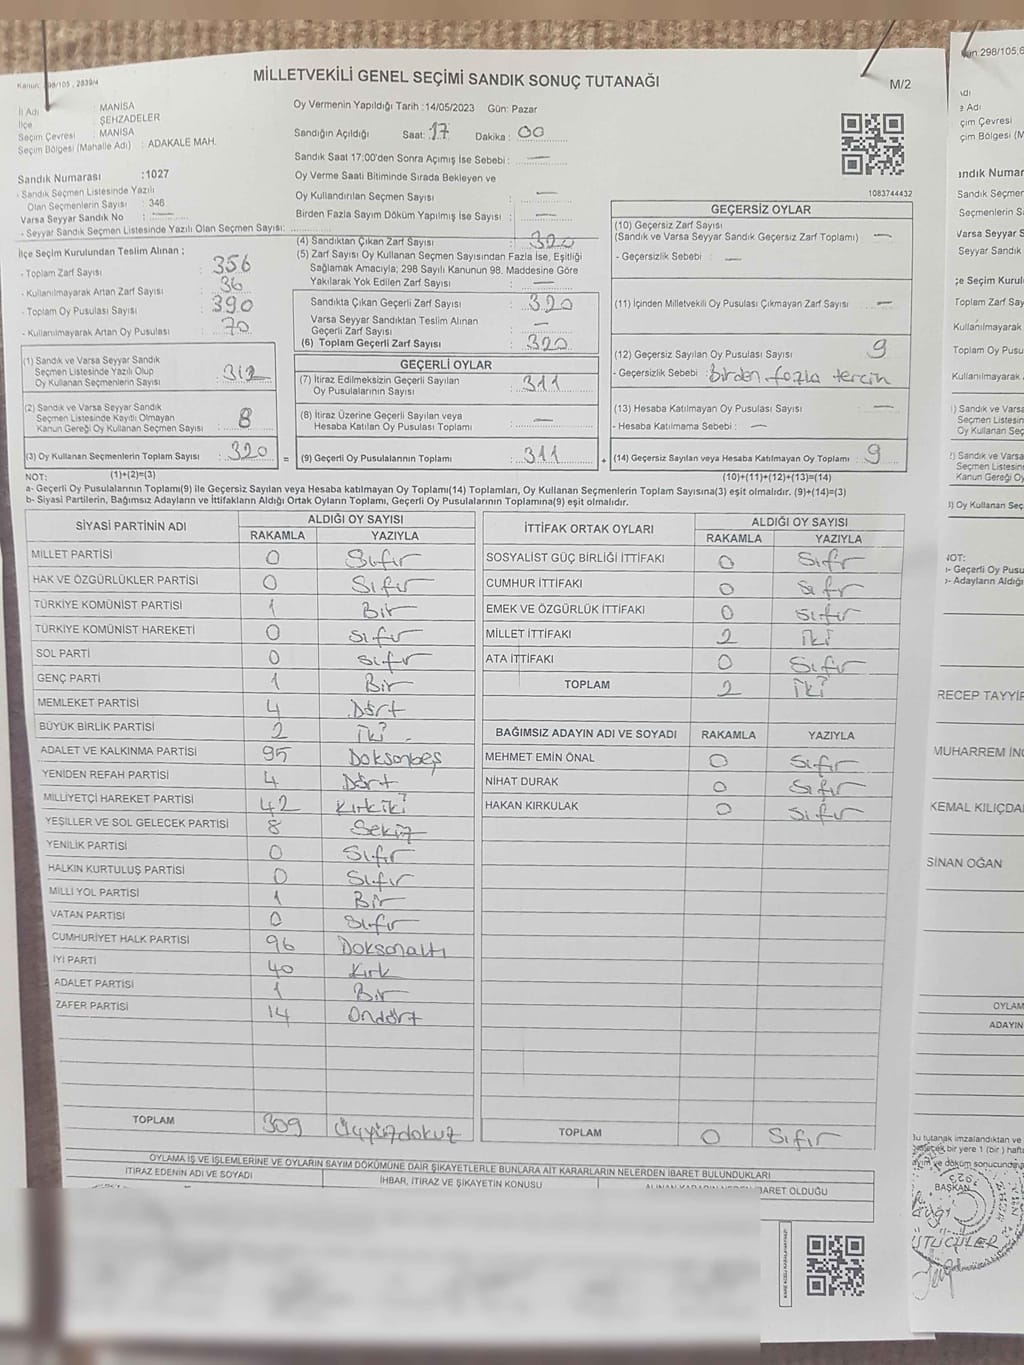 Kanun: 298/105, 2839/4
MİLLETVEKİLİ GENEL SEÇİMİ SANDIK SONUÇ TUTANAĞI
M/2
İl Adı : MANİSA
İlçe : ŞEHZADELER
Seçim Çevresi : MANİSA
Seçim Bölgesi (Mahalle Adı) : ADAKALE MAH.
Oy Vermenin Yapıldığı Tarih :14/05/2023 Gün: Pazar
Sandığın Açıldığı Saat: 17 Dakika: 00
Sandık Saat 17:00'den Sonra Açımış İse Sebebi : —
Oy Verme Saati Bitiminde Sırada Bekleyen ve
Oy Kullandırılan Seçmen Sayısı : —
Birden Fazla Sayım Döküm Yapılmış İse Sayısı : —
1083744432
Sandık Numarası :1027
- Sandık Seçmen Listesinde Yazılı
Olan Seçmenlerin Sayısı : 346
Varsa Seyyar Sandık No : —
- Seyyar Sandık Seçmen Listesinde Yazılı Olan Seçmen Sayısı:
İlçe Seçim Kurulundan Teslim Alınan ;
- Toplam Zarf Sayısı : 356
- Kullanılmayarak Artan Zarf Sayısı : 36
- Toplam Oy Pusulası Sayısı : 390
- Kullanılmayarak Artan Oy Pusulası : 70
(1) Sandık ve Varsa Seyyar Sandık
Seçmen Listesinde Yazılı Olup
Oy Kullanan Seçmenlerin Sayısı : 312
(2) Sandık ve Varsa Seyyar Sandık
Seçmen Listesinde Kayıtlı Olmayan
Kanun Gereği Oy Kullanan Seçmen Sayısı : 8
(3) Oy Kullanan Seçmenlerin Toplam Sayısı : 320
(4) Sandıktan Çıkan Zarf Sayısı : 320
(5) Zarf Sayısı Oy Kullanan Seçmen Sayısından Fazla İse, Eşitliği
Sağlamak Amacıyla; 298 Sayılı Kanunun 98. Maddesine Göre
Yakılarak Yok Edilen Zarf Sayısı : —
Sandıkta Çıkan Geçerli Zarf Sayısı : 320
Varsa Seyyar Sandıktan Teslim Alınan
Geçerli Zarf Sayısı : —
(6) Toplam Geçerli Zarf Sayısı : 320
GEÇERLİ OYLAR
(7) İtiraz Edilmeksizin Geçerli Sayılan
Oy Pusulalarının Sayısı : 311
(8) İtiraz Üzerine Geçerli Sayılan veya
Hesaba Katılan Oy Pusulası Toplamı : —
= (9) Geçerli Oy Pusulalarının Toplamı : 311
GEÇERSİZ OYLAR
(10) Geçersiz Zarf Sayısı
(Sandık ve Varsa Seyyar Sandık Geçersiz Zarf Toplamı) : —
- Geçersizlik Sebebi : —
(11) İçinden Milletvekili Oy Pusulası Çıkmayan Zarf Sayısı : —
(12) Geçersiz Sayılan Oy Pusulası Sayısı : 9
- Geçersizlik Sebebi : Birden fazla tercih
(13) Hesaba Katılmayan Oy Pusulası Sayısı : —
- Hesaba Katılmama Sebebi : —
+ (14) Geçersiz Sayılan veya Hesaba Katılmayan Oy Toplamı : 9
NOT: (1)+(2)=(3)
(10)+(11)+(12)+(13)=(14)
a- Geçerli Oy Pusulalarının Toplamı(9) ile Geçersiz Sayılan veya Hesaba katılmayan Oy Toplamı(14) Toplamları, Oy Kullanan Seçmenlerin Toplam Sayısına(3) eşit olmalıdır. (9)+(14)=(3)
b- Siyasi Partilerin, Bağımsız Adayların ve İttifakların Aldığı Ortak Oyların Toplamı, Geçerli Oy Pusulalarının Toplamına(9) eşit olmalıdır.
SİYASİ PARTİNİN ADI
ALDIĞI OY SAYISI
RAKAMLA YAZIYLA
MİLLET PARTİSİ 0 Sıfır
HAK VE ÖZGÜRLÜKLER PARTİSİ 0 Sıfır
TÜRKİYE KOMÜNİST PARTİSİ 1 Bir
TÜRKİYE KOMÜNİST HAREKETİ 0 Sıfır
SOL PARTİ 0 Sıfır
GENÇ PARTİ 1 Bir
MEMLEKET PARTİSİ 4 Dört
BÜYÜK BİRLİK PARTİSİ 2 İki
ADALET VE KALKINMA PARTİSİ 95 Doksanbeş
YENİDEN REFAH PARTİSİ 4 Dört
MİLLİYETÇİ HAREKET PARTİSİ 42 Kırkiki
YEŞİLLER VE SOL GELECEK PARTİSİ 8 Sekiz
YENİLİK PARTİSİ 0 Sıfır
HALKIN KURTULUŞ PARTİSİ 0 Sıfır
MİLLİ YOL PARTİSİ 1 Bir
VATAN PARTİSİ 0 Sıfır
CUMHURİYET HALK PARTİSİ 96 Doksanaltı
İYİ PARTİ 40 Kırk
ADALET PARTİSİ 1 Bir
ZAFER PARTİSİ 14 Ondört
TOPLAM 309 Üçyüzdokuz
İTTİFAK ORTAK OYLARI
ALDIĞI OY SAYISI
RAKAMLA YAZIYLA
SOSYALİST GÜÇ BİRLİĞİ İTTİFAKI 0 Sıfır
CUMHUR İTTİFAKI 0 Sıfır
EMEK VE ÖZGÜRLÜK İTTİFAKI 0 Sıfır
MİLLET İTTİFAKI 2 İki
ATA İTTİFAKI 0 Sıfır
TOPLAM 2 İki
BAĞIMSIZ ADAYIN ADI VE SOYADI RAKAMLA YAZIYLA
MEHMET EMİN ÖNAL 0 Sıfır
NİHAT DURAK 0 Sıfır
HAKAN KIRKULAK 0 Sıfır
TOPLAM 0 Sıfır
OYLAMA İŞ VE İŞLEMLERİNE VE OYLARIN SAYIM DÖKÜMÜNE DAİR ŞİKAYETLERLE BUNLARA AİT KARARLARIN NELERDEN İBARET BULUNDUKLARI
İTİRAZ EDENİN ADI VE SOYADI
İHBAR, İTİRAZ VE ŞİKAYETİN KONUSU
İBARET OLDUĞU
298/105,6
Seçim Çevresi
Sandık Seçmen
Seçmenlerin
Varsa Seyyar S
Seyyar Sandık
Toplam Zarf Say
Toplam Oy Pusu
RECEP TAYYİP
MUHARREM İNC
KEMAL KILIÇDA
SİNAN OĞAN
OYLAM
ADAYIN
Bu tutanak imzalandıktan ve
bir yere 1 (bir) hafta
ve döküm sonucunda
BAŞKAN